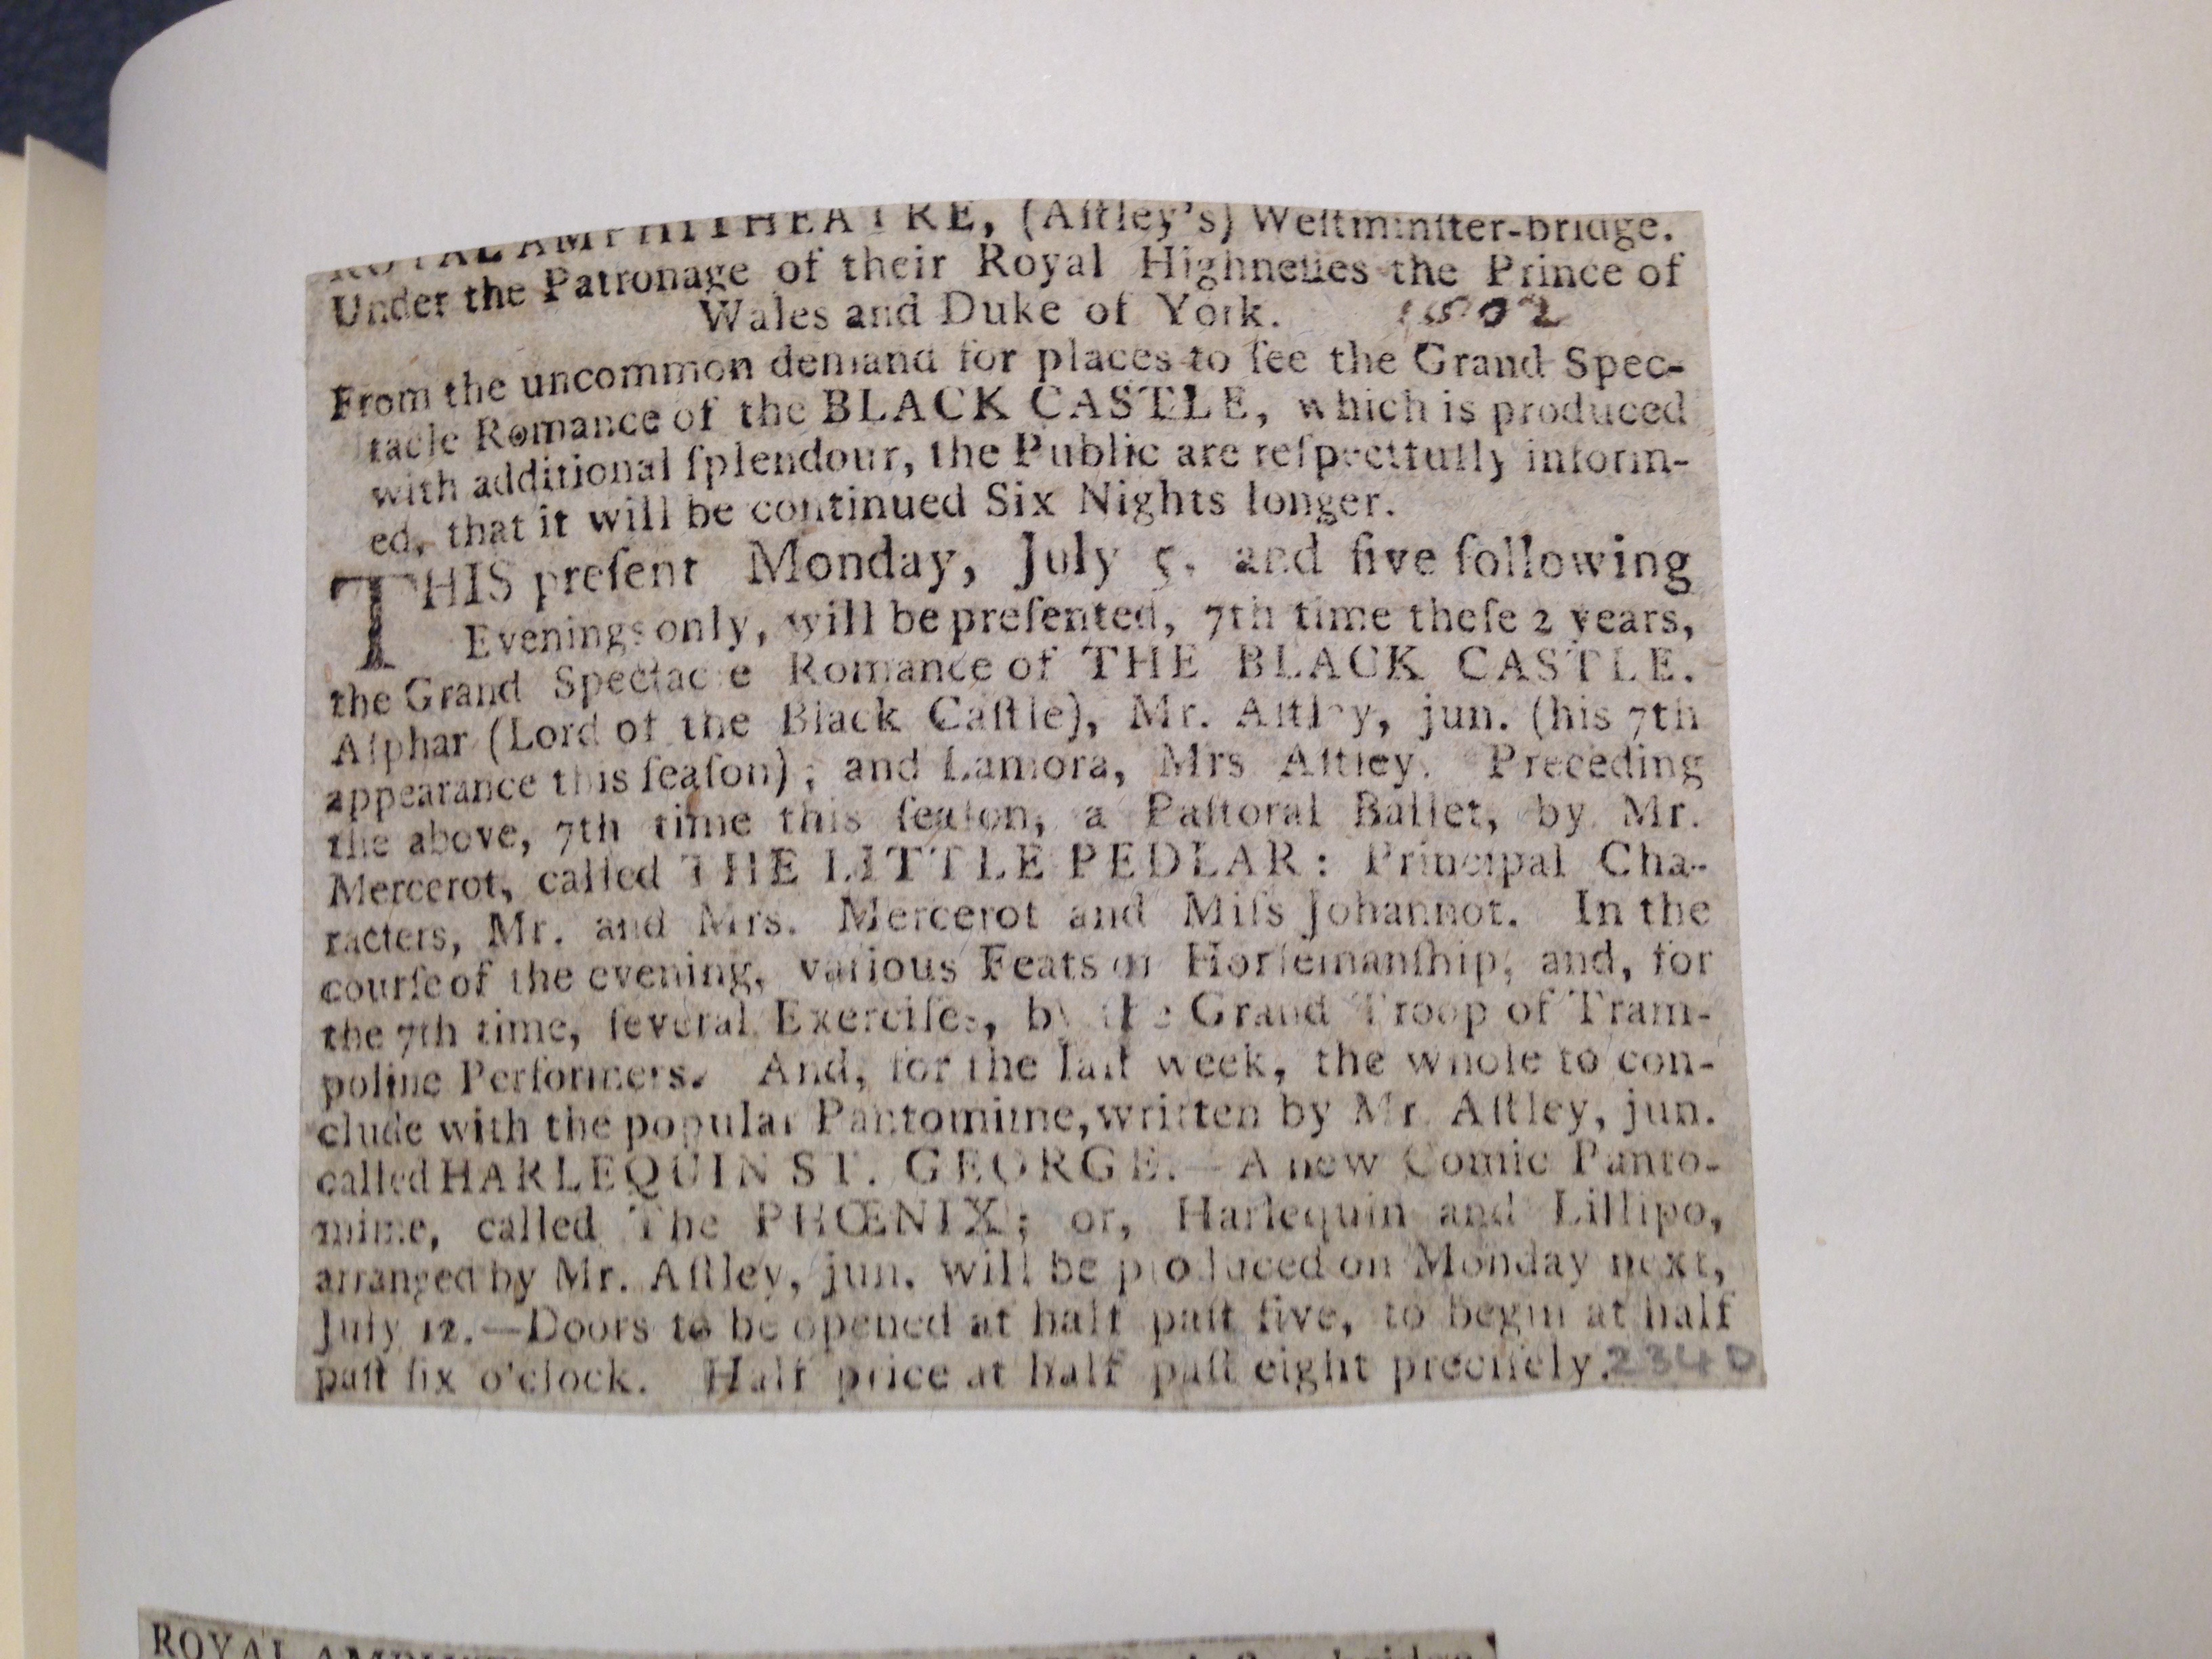 ROYAL AMPHITHEATRE, (Aſtley's) Weſtminſter-bridge.
Under the Patronage of their Royal Highneſſes the Prince of
Wales and Duke of York. 1802
From the uncommon demand for places to ſee the Grand Spec-
tacle Romance of the BLACK CASTLE, which is produced
with additional ſplendour, the Public are reſpectfully inform-
ed, that it will be continued Six Nights longer.
THIS preſent Monday, July 5, and five following
Evenings only, will be preſented, 7th time theſe 2 years,
the Grand Spectacle Romance of THE BLACK CASTLE.
Aſphar (Lord of the Black Caſtle), Mr. Aſtley, jun. (his 7th
appearance this ſeaſon); and Lamora, Mrs Aſtley. Preceding
the above, 7th time this ſeaſon, a Paſtoral Ballet, by Mr.
Mercerot, called THE LITTLE PEDLAR: Principal Cha-
racters, Mr. and Mrs. Mercerot and Miſs Johannot. In the
courſe of the evening, various Feats in Horſemanſhip; and, for
the 7th time, ſeveral Exerciſes, by the Grand Troop of Tram-
poline Performers. And, for the laſt week, the whole to con-
clude with the popular Pantomime, written by Mr Aſtley, jun.
called HARLEQUIN ST. GEORGE.—A new Comic Panto-
mime, called The PHŒNIX; or, Harlequin and Lillipo,
arranged by Mr. Aſtley, jun. will be produced on Monday next,
July 12.—Doors to be opened at half paſt five, to begin at half
paſt ſix o'clock. Half price at half paſt eight preciſely. 234D
ROYAL